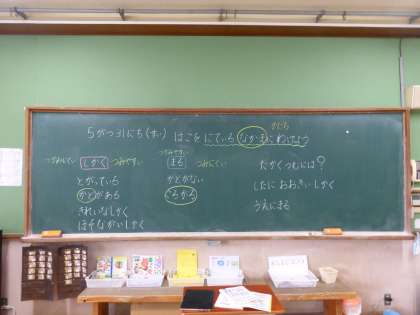 かたち
5がつ31にち(すい) はこを にている なかまに わけよう
つみやすい
つみにくい しかく つみやすい
まる つみにくい
とがっている
かどがある
きれいなしかく
ほそながいしかく
かどがない
ころころ
たかくつむには?
したに おおきい しかく
うえにまる